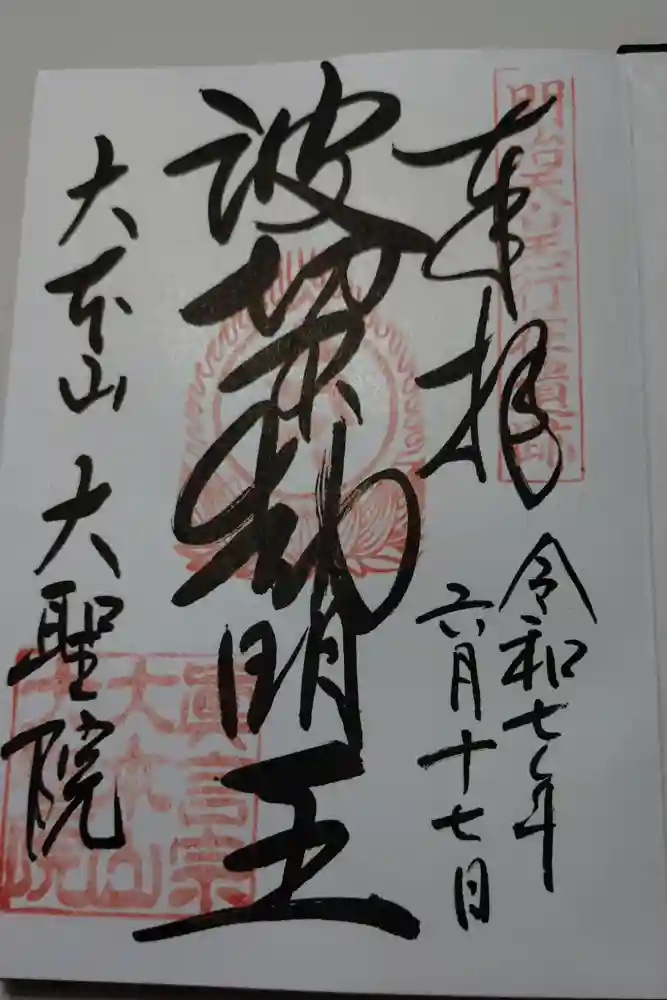 明治天皇行在遺跡
奉拝
令和七年
六月十七日
波切不動明王
大本山 大聖院
眞言宗
大本山
大聖院